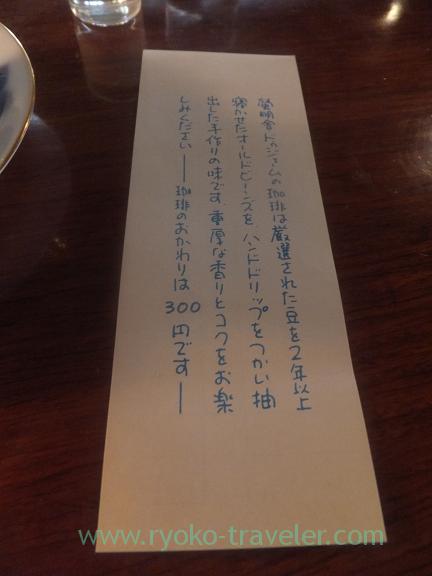 蘭明舎ドゥジェームの珈琲は厳選された豆を2年以上
寝かせたオールドビーンズを、ハンドドリップをつかい抽
出した手作りの味です。重厚な香りとコクをお楽
しみください ── 珈琲のおかわりは 300 円です ──
www.ryoko-traveler.com